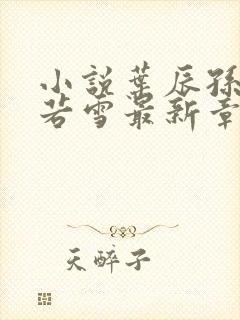 小說葉辰孫
若雪最新章
天醉子